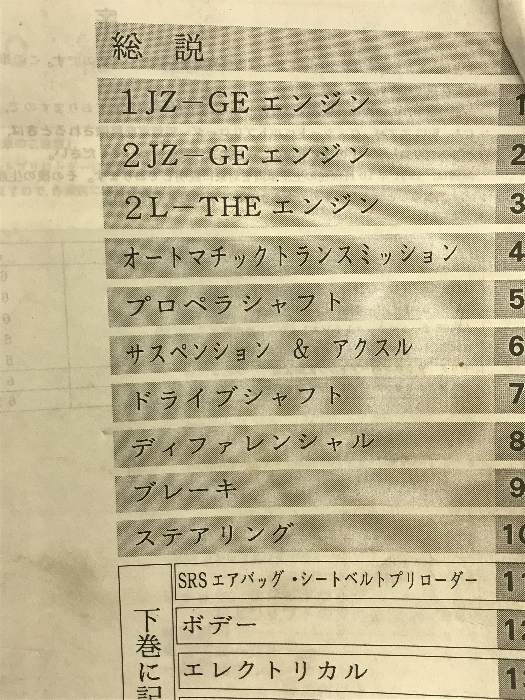 総 説
1JZ－GE エンジン 1
2JZ－GE エンジン 2
2L－THE エンジン 3
オートマチックトランスミッション 4
プロペラシャフト 5
サスペンション & アクスル 6
ドライブシャフト 7
ディファレンシャル 8
ブレーキ 9
ステアリング 10
下巻に記
SRSエアバッグ・シートベルトプリローダー 11
ボデー
エレクトリカル